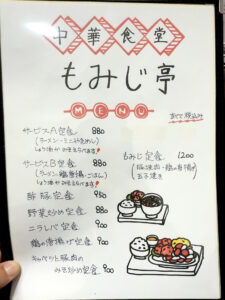 中華食堂
もみじ亭
MENU
すべて税込み
サービスA定食 880
(ラーメン・ミニチャーハン)
しょう油かみそえらべます!
サービスB定食 880
(ラーメン・鶏唐揚・ごはん)
しょう油かみそえらべます!
酢豚定食 980
野菜炒め定食 880
ニラレバ定食 900
鶏の唐揚げ定食 900
キャベツと豚肉の
みそ炒め定食 900
もみじ定食 1200
(豚焼肉・鶏の唐揚
玉子焼き)